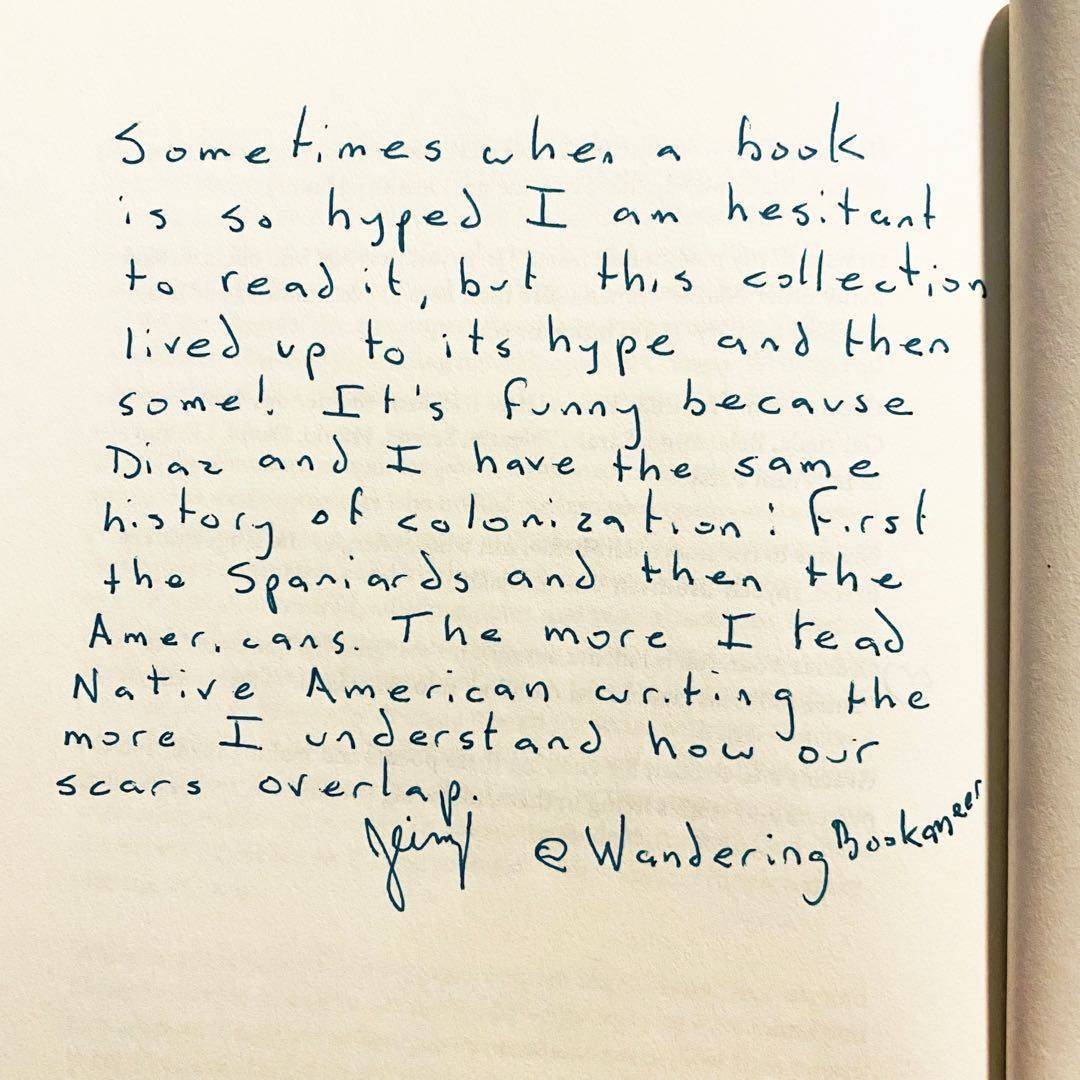 Sometimes when a book
is so hyped I am hesitant
to read it, but this collection
lived up to its hype and then
some! It's funny because
Diaz and I have the same
history of colonization: first
the Spaniards and then the
Americans. The more I read
Native American writing the
more I understand how our
scars overlap.
@WanderingBookaneer